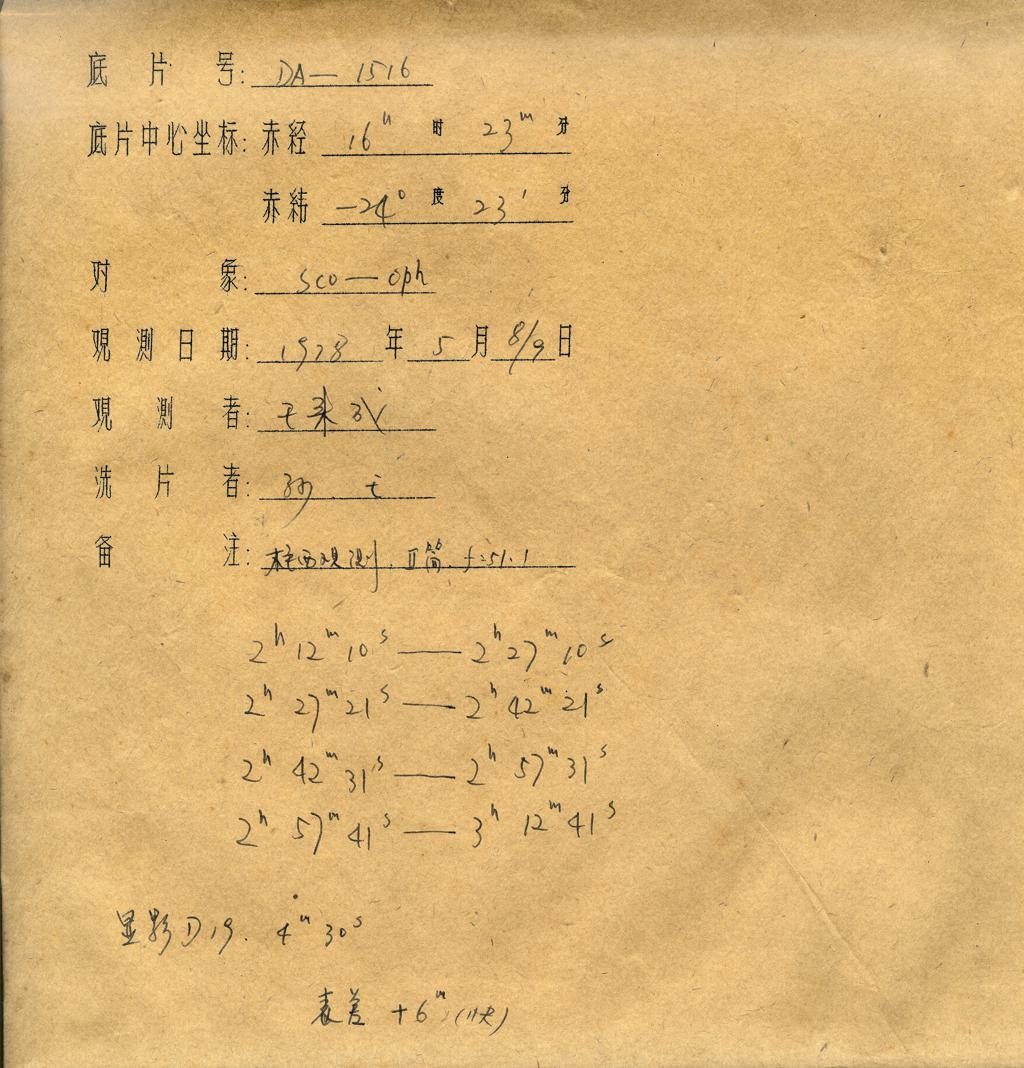 底片号: DA— 1516
底片中心坐标: 赤经 16ʰ 时 23ᵐ 分
赤纬 -24° 度 23′ 分
对象: sco — oph
观测日期: 1978 年 5 月 8/9 日
观测者: 王来成
洗片者: 孙. 王
备注: 观测. II筒. f=51.1
2ʰ 12ᵐ 10ˢ — 2ʰ 27ᵐ 10ˢ
2ʰ 27ᵐ 21ˢ — 2ʰ 42ᵐ 21ˢ
2ʰ 42ᵐ 31ˢ — 2ʰ 57ᵐ 31ˢ
2ʰ 57ᵐ 41ˢ — 3ʰ 12ᵐ 41ˢ
显影D19. 4ᵐ 30ˢ
表差 +6ᵐ